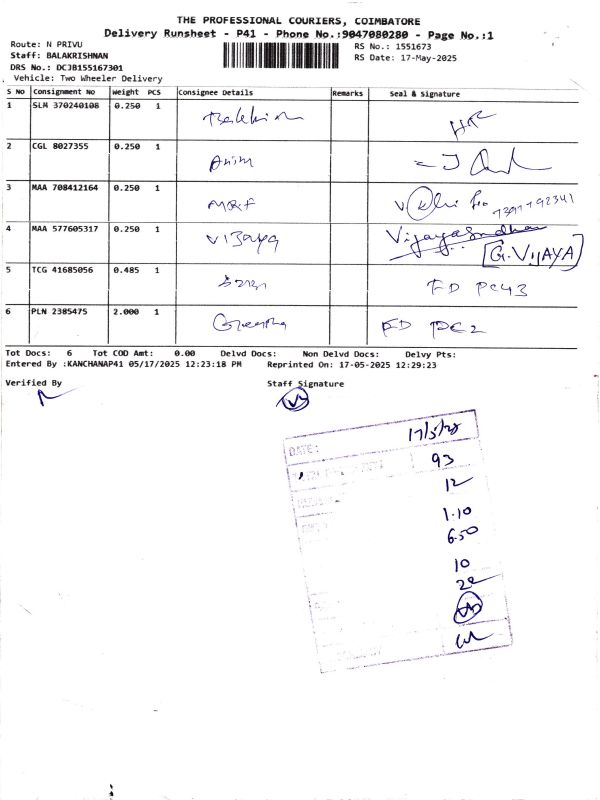 THE PROFESSIONAL COURIERS, COIMBATORE
Delivery Runsheet - P41 - Phone No.:9047080280 - Page No.:1
Route: N PRIVU
RS No.: 1551673
Staff: BALAKRISHNAN
RS Date: 17-May-2025
DRS No.: DCJB155167301
Vehicle: Two Wheeler Delivery
S No Consignment No Weight PCS Consignee Details Remarks Seal & Signature
1 SLM 370240108 0.250 1
2 CGL 8027355 0.250 1
3 MAA 708412164 0.250 1 MRF
4 MAA 577605317 0.250 1 Vijaya Vijayasudhan
[G.VIJAYA]
5 TCG 41685056 0.485 1 FD PC43
6 PLN 2385475 2.000 1 Greetha FD PC2
Tot Docs: 6 Tot COD Amt: 0.00 Delvd Docs: Non Delvd Docs: Delvy Pts:
Entered By :KANCHANAP41 05/17/2025 12:23:18 PM Reprinted On: 17-05-2025 12:29:23
Verified By Staff Signature
DATE: 17/5/25
93
12
1.10
6.50
10
22